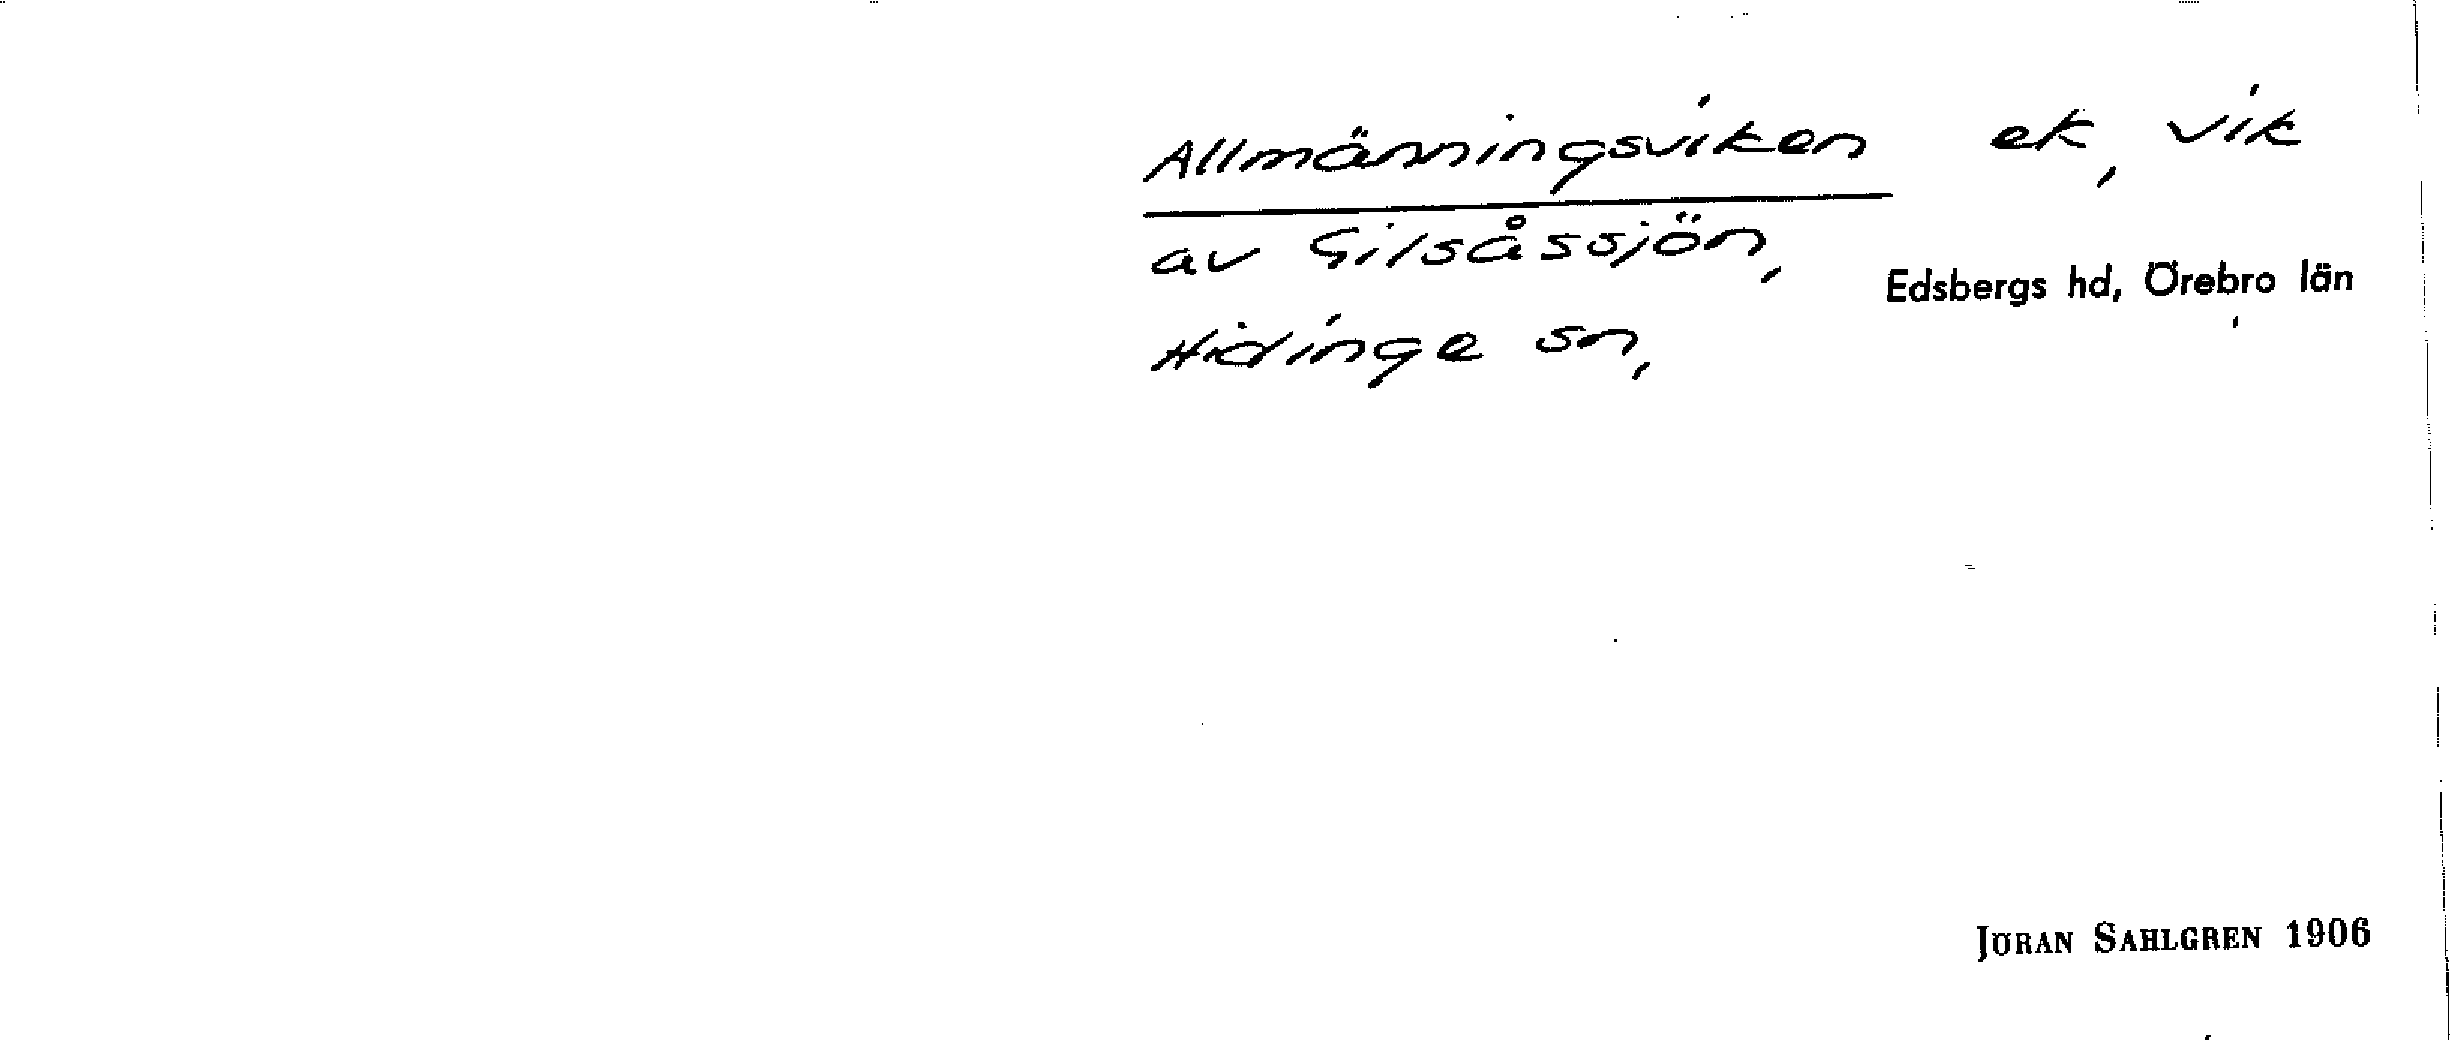 Allmänningsviken ek, vik
av Gilsåssjön,
Edsbergs hd, Örebro län
Hidinge sn,
JÖRAN SAHLGREN 1906